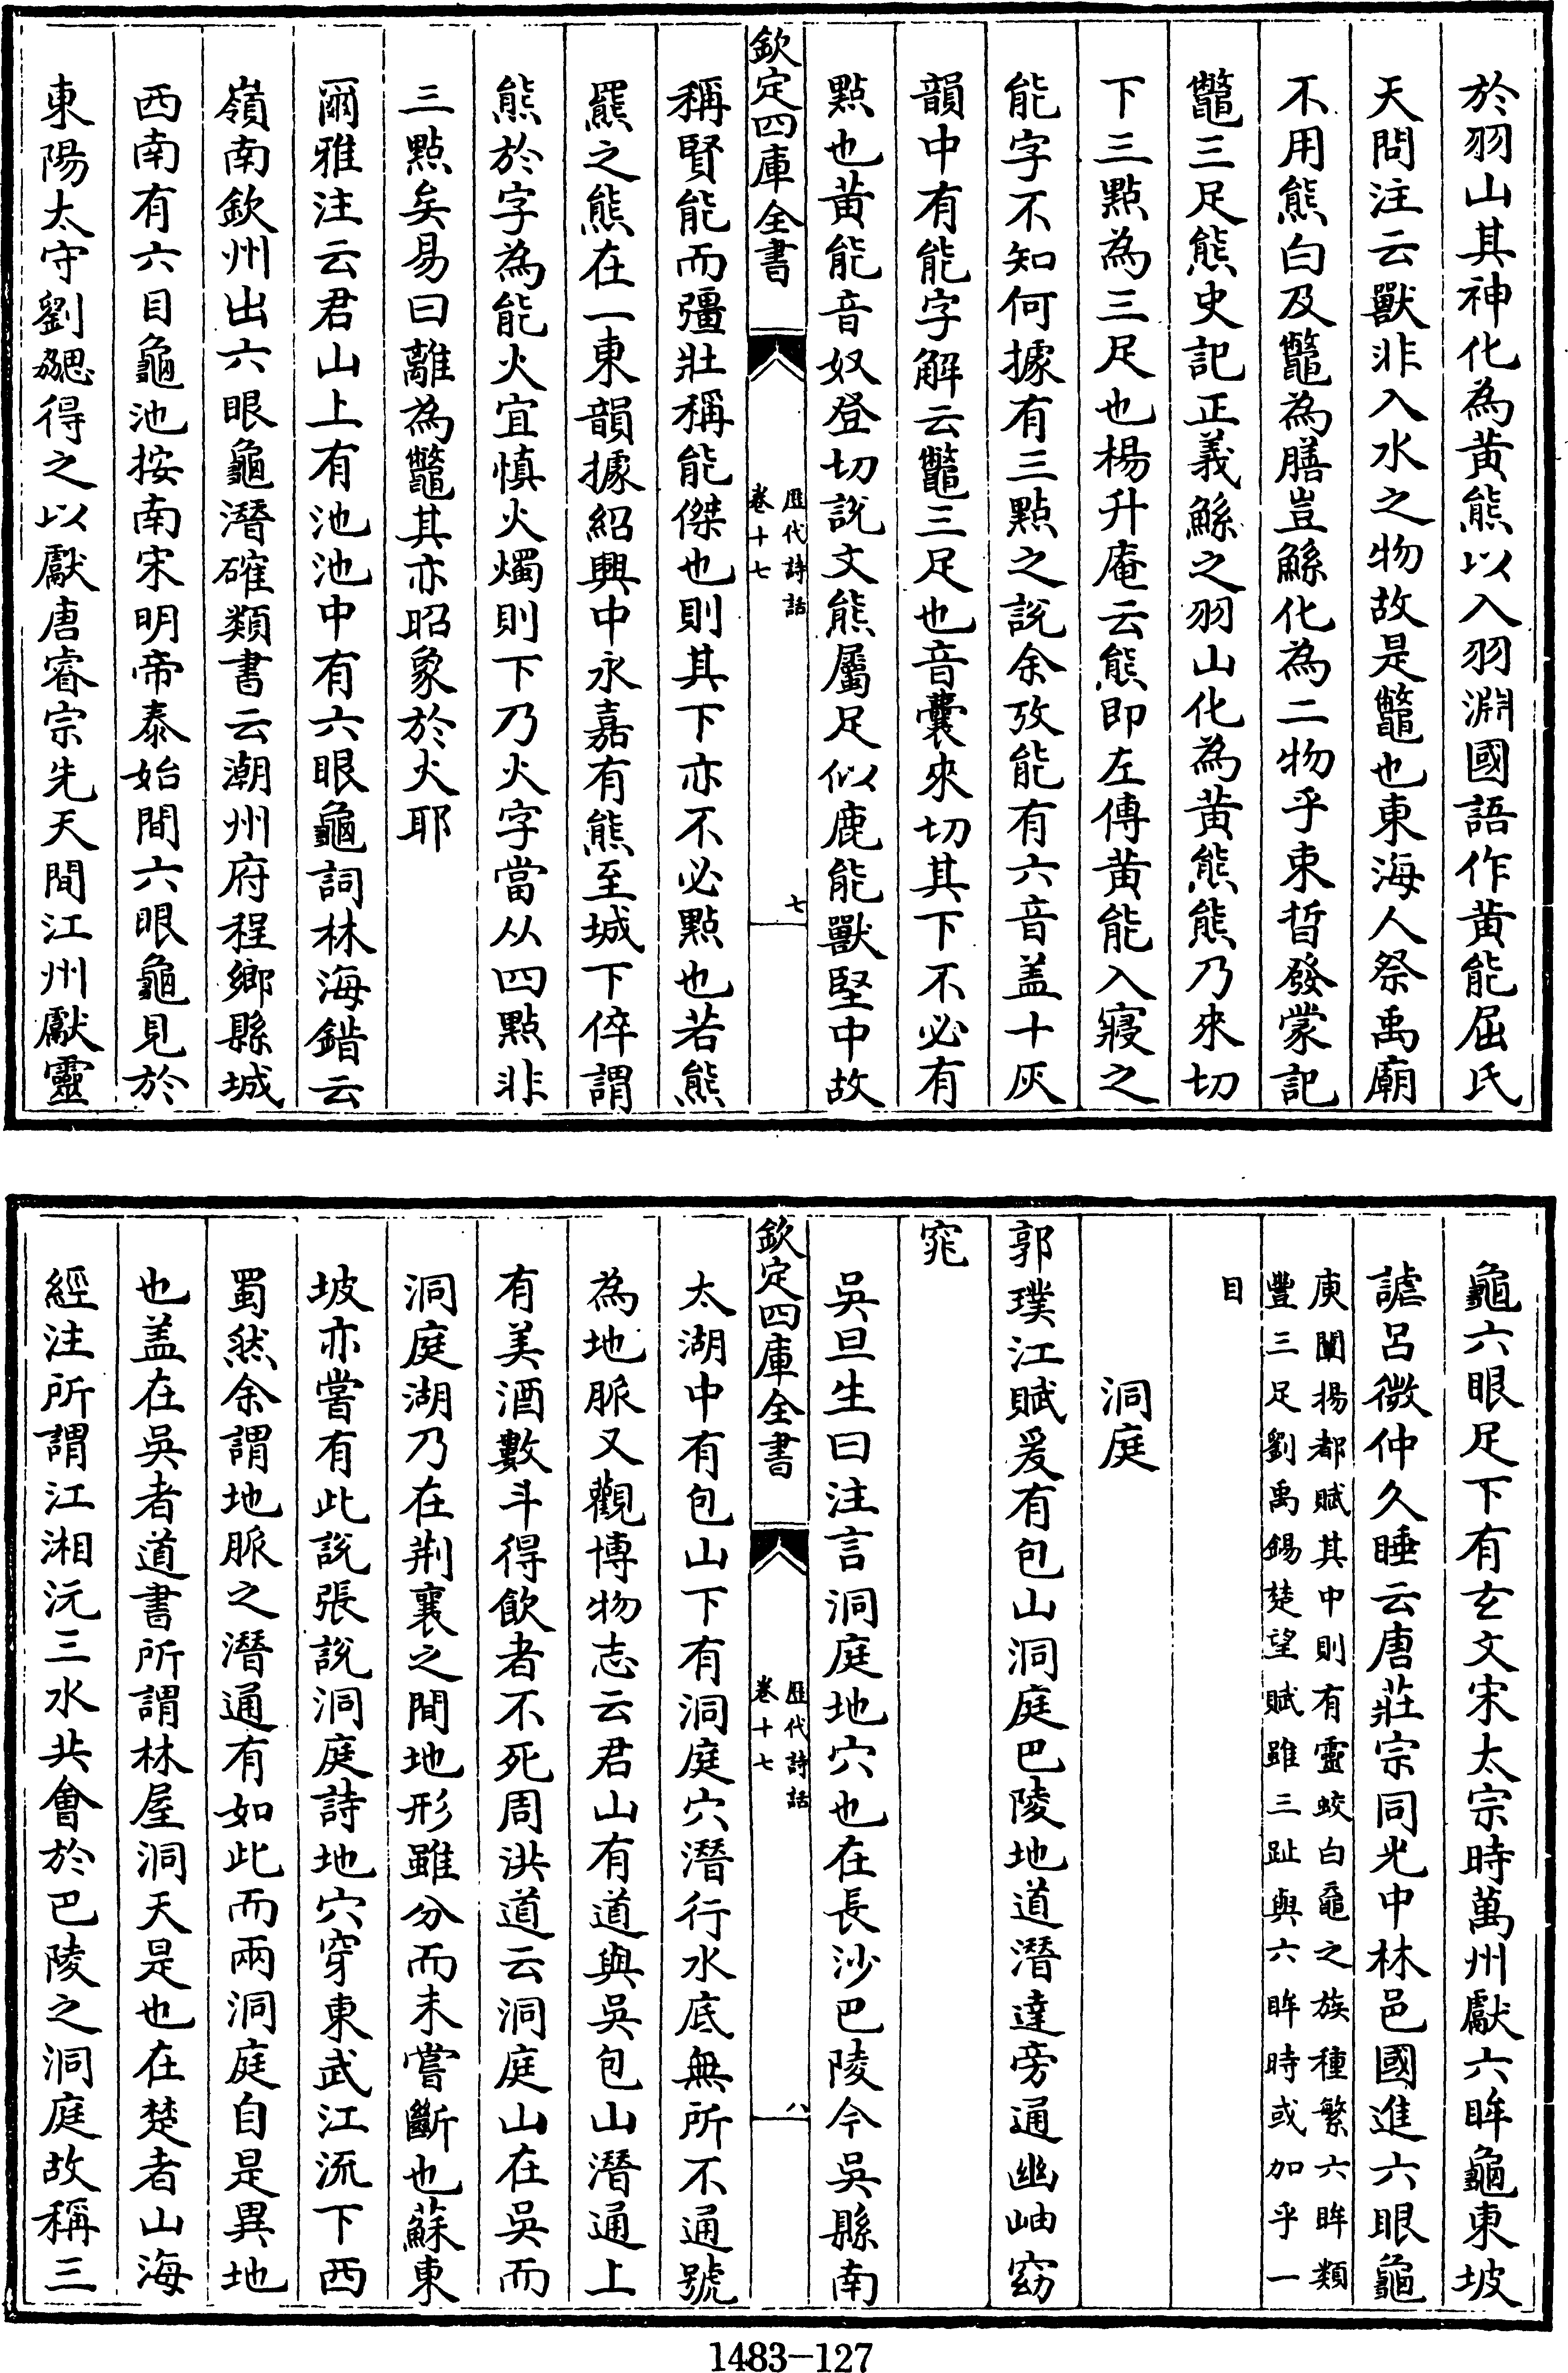 於羽山其神化為黃熊以入羽淵國語作黃能屈氏
天問注云獸非入水之物故是鼈也東海人祭禹廟
不用熊白及鼈為膳豈鯀化為二物乎束晳發蒙記
鼈三足熊史記正義鯀之羽山化為黃熊熊乃來切
下三點為三足也楊升庵云熊即左傳黃能入寢之
能字不知何據有三點之說余攷能有六音盖十灰
韻中有能字解云鼈三足也音囊來切其下不必有
點也黃能音奴登切説文熊屬足似鹿能獸堅中故
欽定四庫全書
歷代詩話
卷十七
七
稱賢能而彊壯稱能傑也則其下亦不必點也若熊
羆之熊在一東韻據紹興中永嘉有熊至城下倅謂
熊於字為能火宜慎火燭則下乃火字當从四點非
三點矣易曰離為鼈其亦昭象於火耶
爾雅注云君山上有池池中有六眼龜詞林海錯云
嶺南欽州出六眼龜潛確類書云潮州府程鄉縣城
西南有六目龜池按南宋明帝泰始間六眼龜見於
東陽太守劉勰得之以獻唐睿宗先天間江州獻靈
龜六眼足下有玄文宋太宗時萬州獻六眸龜東坡
謔呂微仲久睡云唐莊宗同光中林邑國進六眼龜
庾闡揚都賦其中則有靈蛟白黿之族種繁六眸類
豐三足劉禹錫楚望賦雖三趾與六眸時或加乎一
目
洞庭
郭璞江賦爰有包山洞庭巴陵地道潛達旁通幽岫窈
窕
吳旦生曰注言洞庭地穴也在長沙巴陵今吳縣南
欽定四庫全書
歷代詩話
卷十七
八
太湖中有包山下有洞庭穴潛行水底無所不通號
為地脈又觀博物志云君山有道與吳包山潛通上
有美酒數斗得飲者不死周洪道云洞庭山在吳而
洞庭湖乃在荆襄之間地形雖分而未嘗斷也蘇東
坡亦嘗有此說張說洞庭詩地穴穿東武江流下西
蜀然余謂地脈之潛通有如此而兩洞庭自是異地
也盖在吳者道書所謂林屋洞天是也在楚者山海
經注所謂江湘沅三水共會於巴陵之洞庭故稱三
1483-127